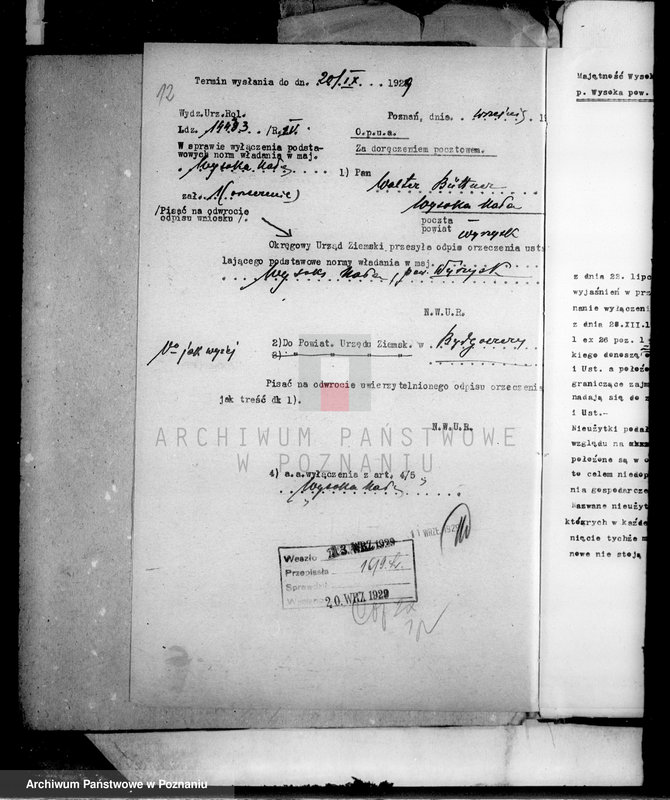 12
Termin wysłania do dn. 20/IX . . 1929
Wydz.Urz.Rol.
Poznań, dnia. wrzesień . 19
Ldz. 14483. /R.
O.p.u.a.
W sprawie wyłączenia podsta-
wowych norm władania w maj.
Za doręczeniem pocztowem.
. Wysoka Mała . . . .
1) Pan
Walter Büttner
zał. 1 (orzeczenie)
Wysoka Mała
/Pisać na odwrocie
odpisu wniosku /.
poczta —
powiat Wyrzysk
Okręgowy Urząd Ziemski przesyła odpis orzeczenia usta
lającego podstawowe normy władania w maj. . . . .
. . Wysoka Mała, pow. Wyrzysk . .
N.W.U.R.
jak wyżej
2)Do Powiat. Urzędu Ziemsk. w . Bydgoszczy
3)
Pisać na odwrocie uwierzytelnionego odpisu orzeczenia
jak treść dk 1).
N.W.U.R.
ARCHIWUM PAŃSTWOWE
W POZNANIU
4) a.a.wyłączenia z art. 4/5
. . Wysoka Mała . . . .
11 WRZ. 1929
Weszło 13. WRZ 1929
Przepisała 19/9
Sprawdził
20. WRZ 1929
Majętność Wysok
p. Wysoka pow.
z dnia 22. lipc
wyjaśnień w prz
nanie wyłączeni
z dnia 28.XII.1
1 ex 26 poz. 1
kiego donoszą
i Ust. a położo
graniczące zajm
nadają się do z
i Ust.-
Nieużytki podal
względu na
położone są w o
to celem niedop
nia gospodarcze
Nazwane nieużyt
których w każde
nięcie tychże m
nowe nie stoją
Archiwum Państwowe w Poznaniu